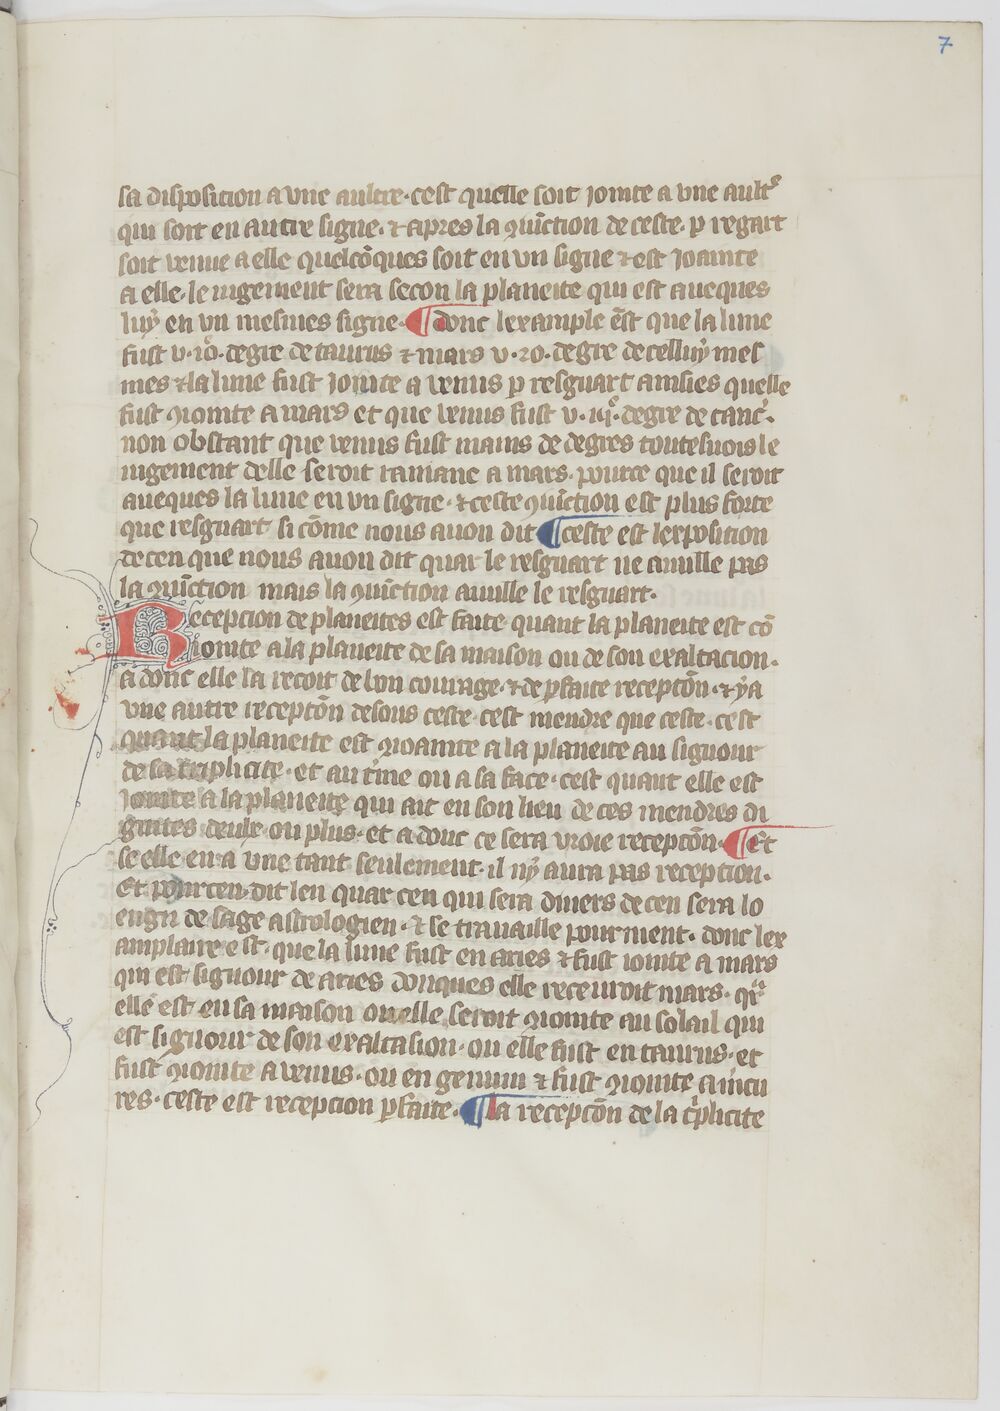 7
sa disposition a vne aultre · cest quelle soit iointe a vne ault᷒
qui soit en autre signe · ⁊ apres la ꝯiu̅ction de ceste · ꝑ regart
soit venue a elle quelco̅ques soit en vn signe ⁊ est Joainte
a elle · le iugement sera secon la planeite qui est auecques
luy en vn mesmes signe · ¶ donc lexample e̅st que la lune
fust v · io̅ · degre de taurus ⁊ mars v · 20 · degre de celluy mes
mes ⁊ la lune fust Jointe a venus ꝑ resguart ainsies quelle
fust ꝯiointe a mars et que venus fust v · iiij̊ · degre de canc̛ ·
non obstant que venus fust mains de degres toutesuois le
iugement delle seroit ramanc a mars · pource que il seroit
aueques la lune en vn signe · ⁊ ceste ꝯiu̅ction est plus forte
que resguart si co̅me nous auon dit ¶ ceste est lexposition
de cen que nous auon dit quar le resguart ne anulle pas
la ꝯiu̅ction mais la ꝯiu̅ction anulle le resguart ·
Recepcion de planeites est faite quant la planeite est co̅
iointe a la planeite de sa maison ou de son exaltacion ·
a donc elle la recoit de bon courage · ⁊ de ꝑfaite recepto̅n · ⁊ y a
vne autre recepto̅n desous ceste · cest mendre que ceste · cest
quant la planeite est ꝯioainte a la planeite au signour
de sa triplicite · et au t̛ine ou a sa face · cest quant elle est
Jointe a la planeite qui ait en son lieu de ces mendres di
gnites deulx · ou plus · et a donc ce sera vroie recepto̅n · ¶ Et
se elle en a vne tant seulement · il ny aura pas reception ·
Et pourcen · dit len quar cen qui sera diuers de cen sera lo
engn de sage astrologien · ⁊ se trauaille pourment · donc lex
amplaire est · que la lune fust en aries ⁊ fust iointe a mars
qui est signour de aries donques elle receuroit mars · qr̊
elle est en sa maison ou elle seroit ꝯiointe au solail qui
est signour de son exaltasion · ou elle fust en taurus · et
fust ꝯiointe a venus · ou en gemini ⁊ fust ꝯiointe a m̛cu
res · ceste est recepcion ꝑfaite · ¶ la recepto̅n de la t̛plicite